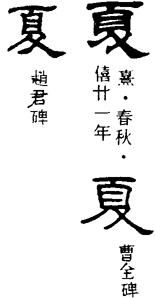 夏
熹·春秋·
僖廿一年
夏
曹全碑
夏
趙君碑